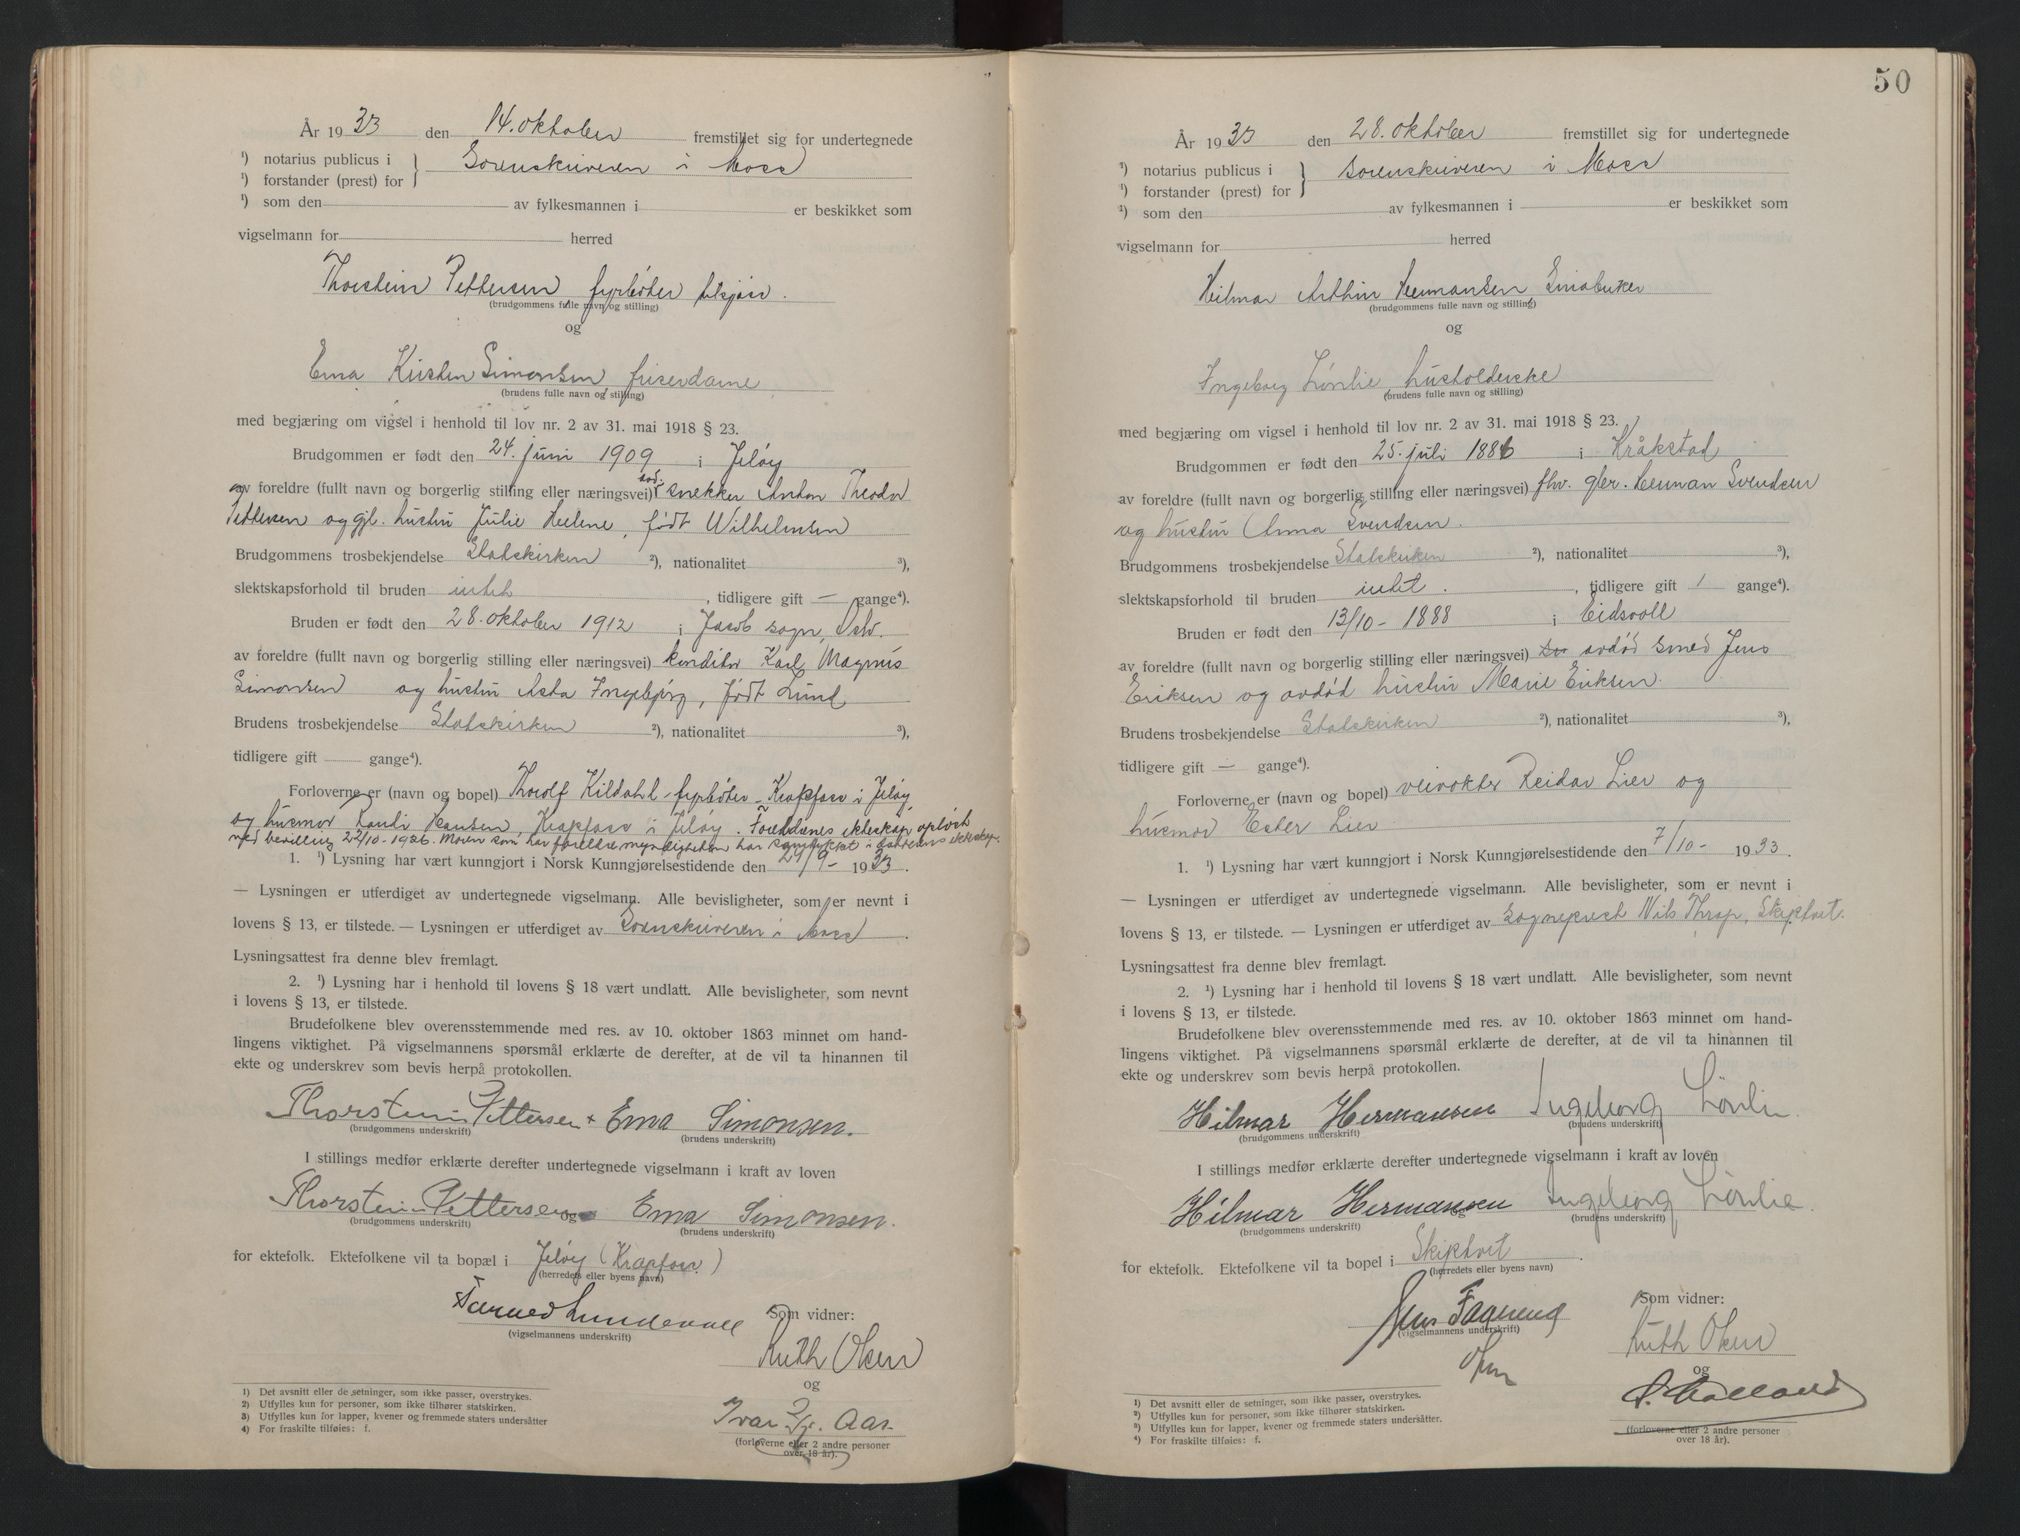 År 1933 den 14. oktober fremstillet sig for undertegnede
¹) notarius publicus i
¹) forstander (prest) for } Sorenskriveren i Moss
¹) som den av fylkesmannen i er beskikket som
vigselmann for herred
Thorstein Pettersen fyrbøter tilsjøss.
(brudgommens fulle navn og stilling)
og
Erna Kirsten Simonsen, friserdame
(brudens fulle navn og stilling)
med begjæring om vigsel i henhold til lov nr. 2 av 31. mai 1918 § 23.
Brudgommen er født den 24. juni 1909 i Jeløy
av foreldre (fullt navn og borgerlig stilling eller næringsvei) snekker Anton Theodor
Pettersen og gjl. hustru Julie Helene, født Wilhelmsen
Brudgommens trosbekjendelse Statskirken ²), nationalitet ³),
slektskapsforhold til bruden intet, tidligere gift — gange⁴).
Bruden er født den 28. oktober 1912 i Jacob sogn, Oslo.
av foreldre (fullt navn og borgerlig stilling eller næringsvei) konditor Karl Magnus
Simonsen og hustru Asta Ingebjørg, født Lund
Brudens trosbekjendelse Statskirken ²), nationalitet ³),
tidligere gift gange⁴).
Forloverne er (navn og bopel) Thorolf Kildahl - fyrbøter - Krapfoss i Jeløy
og husmor Randi Hansen, Krapfoss i Jeløy. Foreldrenes ekteskap opløst
ved bevilling 22/10-1926. Moren som har foreldremyndigheten har samtykket i datterens ekteskap.
1. ¹) Lysning har vært kunngjort i Norsk Kunngjørelsestidende den 29/9 - 1933.
— Lysningen er utferdiget av undertegnede vigselmann. Alle bevisligheter, som er nevnt i
lovens § 13, er tilstede. — Lysningen er utferdiget av Sorenskriveren i Moss.
Lysningsattest fra denne blev fremlagt.
2. ¹) Lysning har i henhold til lovens § 18 vært undlatt. Alle bevisligheter, som nevnt
i lovens § 13, er tilstede.
Brudefolkene blev overensstemmende med res. av 10. oktober 1863 minnet om hand-
lingens viktighet. På vigselmannens spørsmål erklærte de derefter, at de vil ta hinannen til
ekte og underskrev som bevis herpå protokollen.
Thorstein Pettersen + Erna Simonsen.
(brudgommens underskrift) (brudens underskrift)
I stillings medfør erklærte derefter undertegnede vigselmann i kraft av loven
Thorstein Pettersen og Erna Simonsen.
(brudgommens underskrift) (brudens underskrift)
for ektefolk. Ektefolkene vil ta bopæl i Jeløy (Krapfoss)
(herredets eller byens navn)
Lundevall
(vigselmannens underskrift)
Som vidner:
Ruth Olsen
og
Ivar Aas.
(forloverne eller 2 andre personer
over 18 år).
1) Det avsnitt eller de setninger, som ikke passer, overstrykes.
2) Utfylles kun for personer, som ikke tilhører statskirken.
3) Utfylles kun for lapper, kvener og fremmede staters undersåtter
4) For fraskilte tilføies: f.
50
År 1933 den 28. oktober fremstillet sig for undertegnede
¹) notarius publicus i
¹) forstander (prest) for } sorenskriveren i Moss
¹) som den av fylkesmannen i er beskikket som
vigselmann for herred
Hilmar Arthur Hermansen Småbruker
(brudgommens fulle navn og stilling)
og
Ingeborg Lørlie, husholderske
(brudens fulle navn og stilling)
med begjæring om vigsel i henhold til lov nr. 2 av 31. mai 1918 § 23.
Brudgommen er født den 25. juli 1886 i Kråkstad
av foreldre (fullt navn og borgerlig stilling eller næringsvei) fhv. gbr. Herman Svendsen
og hustru Anna Svendsen.
Brudgommens trosbekjendelse Statskirken ²), nationalitet ³),
slektskapsforhold til bruden intet., tidligere gift 1 gange⁴).
Bruden er født den 13/10 - 1888 i Eidsvoll
av foreldre (fullt navn og borgerlig stilling eller næringsvei) avdød smed Jens
Eriksen og avdød hustru Marie Eriksen.
Brudens trosbekjendelse Statskirken ²), nationalitet ³),
tidligere gift — gange⁴).
Forloverne er (navn og bopel) veivokter Reidar Lier og
husmor Ester Lier
1. ¹) Lysning har vært kunngjort i Norsk Kunngjørelsestidende den 7/10 - 1933.
— Lysningen er utferdiget av undertegnede vigselmann. Alle bevisligheter, som er nevnt i
lovens § 13, er tilstede. — Lysningen er utferdiget av Sogneprest Nils Thrap, Skiptvet.
Lysningsattest fra denne blev fremlagt.
2. ¹) Lysning har i henhold til lovens § 18 vært undlatt. Alle bevisligheter, som nevnt
i lovens § 13, er tilstede.
Brudefolkene blev overensstemmende med res. av 10. oktober 1863 minnet om hand-
lingens viktighet. På vigselmannens spørsmål erklærte de derefter, at de vil ta hinannen til
ekte og underskrev som bevis herpå protokollen.
Hilmar Hermansen Ingeborg Lørlie.
(brudgommens underskrift) (brudens underskrift)
I stillings medfør erklærte derefter undertegnede vigselmann i kraft av loven
Hilmar Hermansen og Ingeborg Lørlie.
(brudgommens underskrift) (brudens underskrift)
for ektefolk. Ektefolkene vil ta bopel i Skiptvet.
(herredets eller byens navn)
Jens
(vigselmannens underskrift)
Som vidner:
Ruth Olsen
og
(forloverne eller 2 andre personer
over 18 år).
1) Det avsnitt eller de setninger, som ikke passer, overstrykes.
2) Utfylles kun for personer, som ikke tilhører statskirken.
3) Utfylles kun for lapper, kvener og fremmede staters undersåtter.
4) For fraskilte tilføies: f.